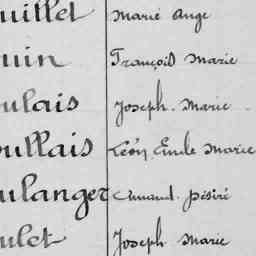 uillet Marie Ange
uin François Marie
ulais Joseph Marie
oullais Léon Emile Marie
ulanger Armand Désiré
ulet Joseph Marie